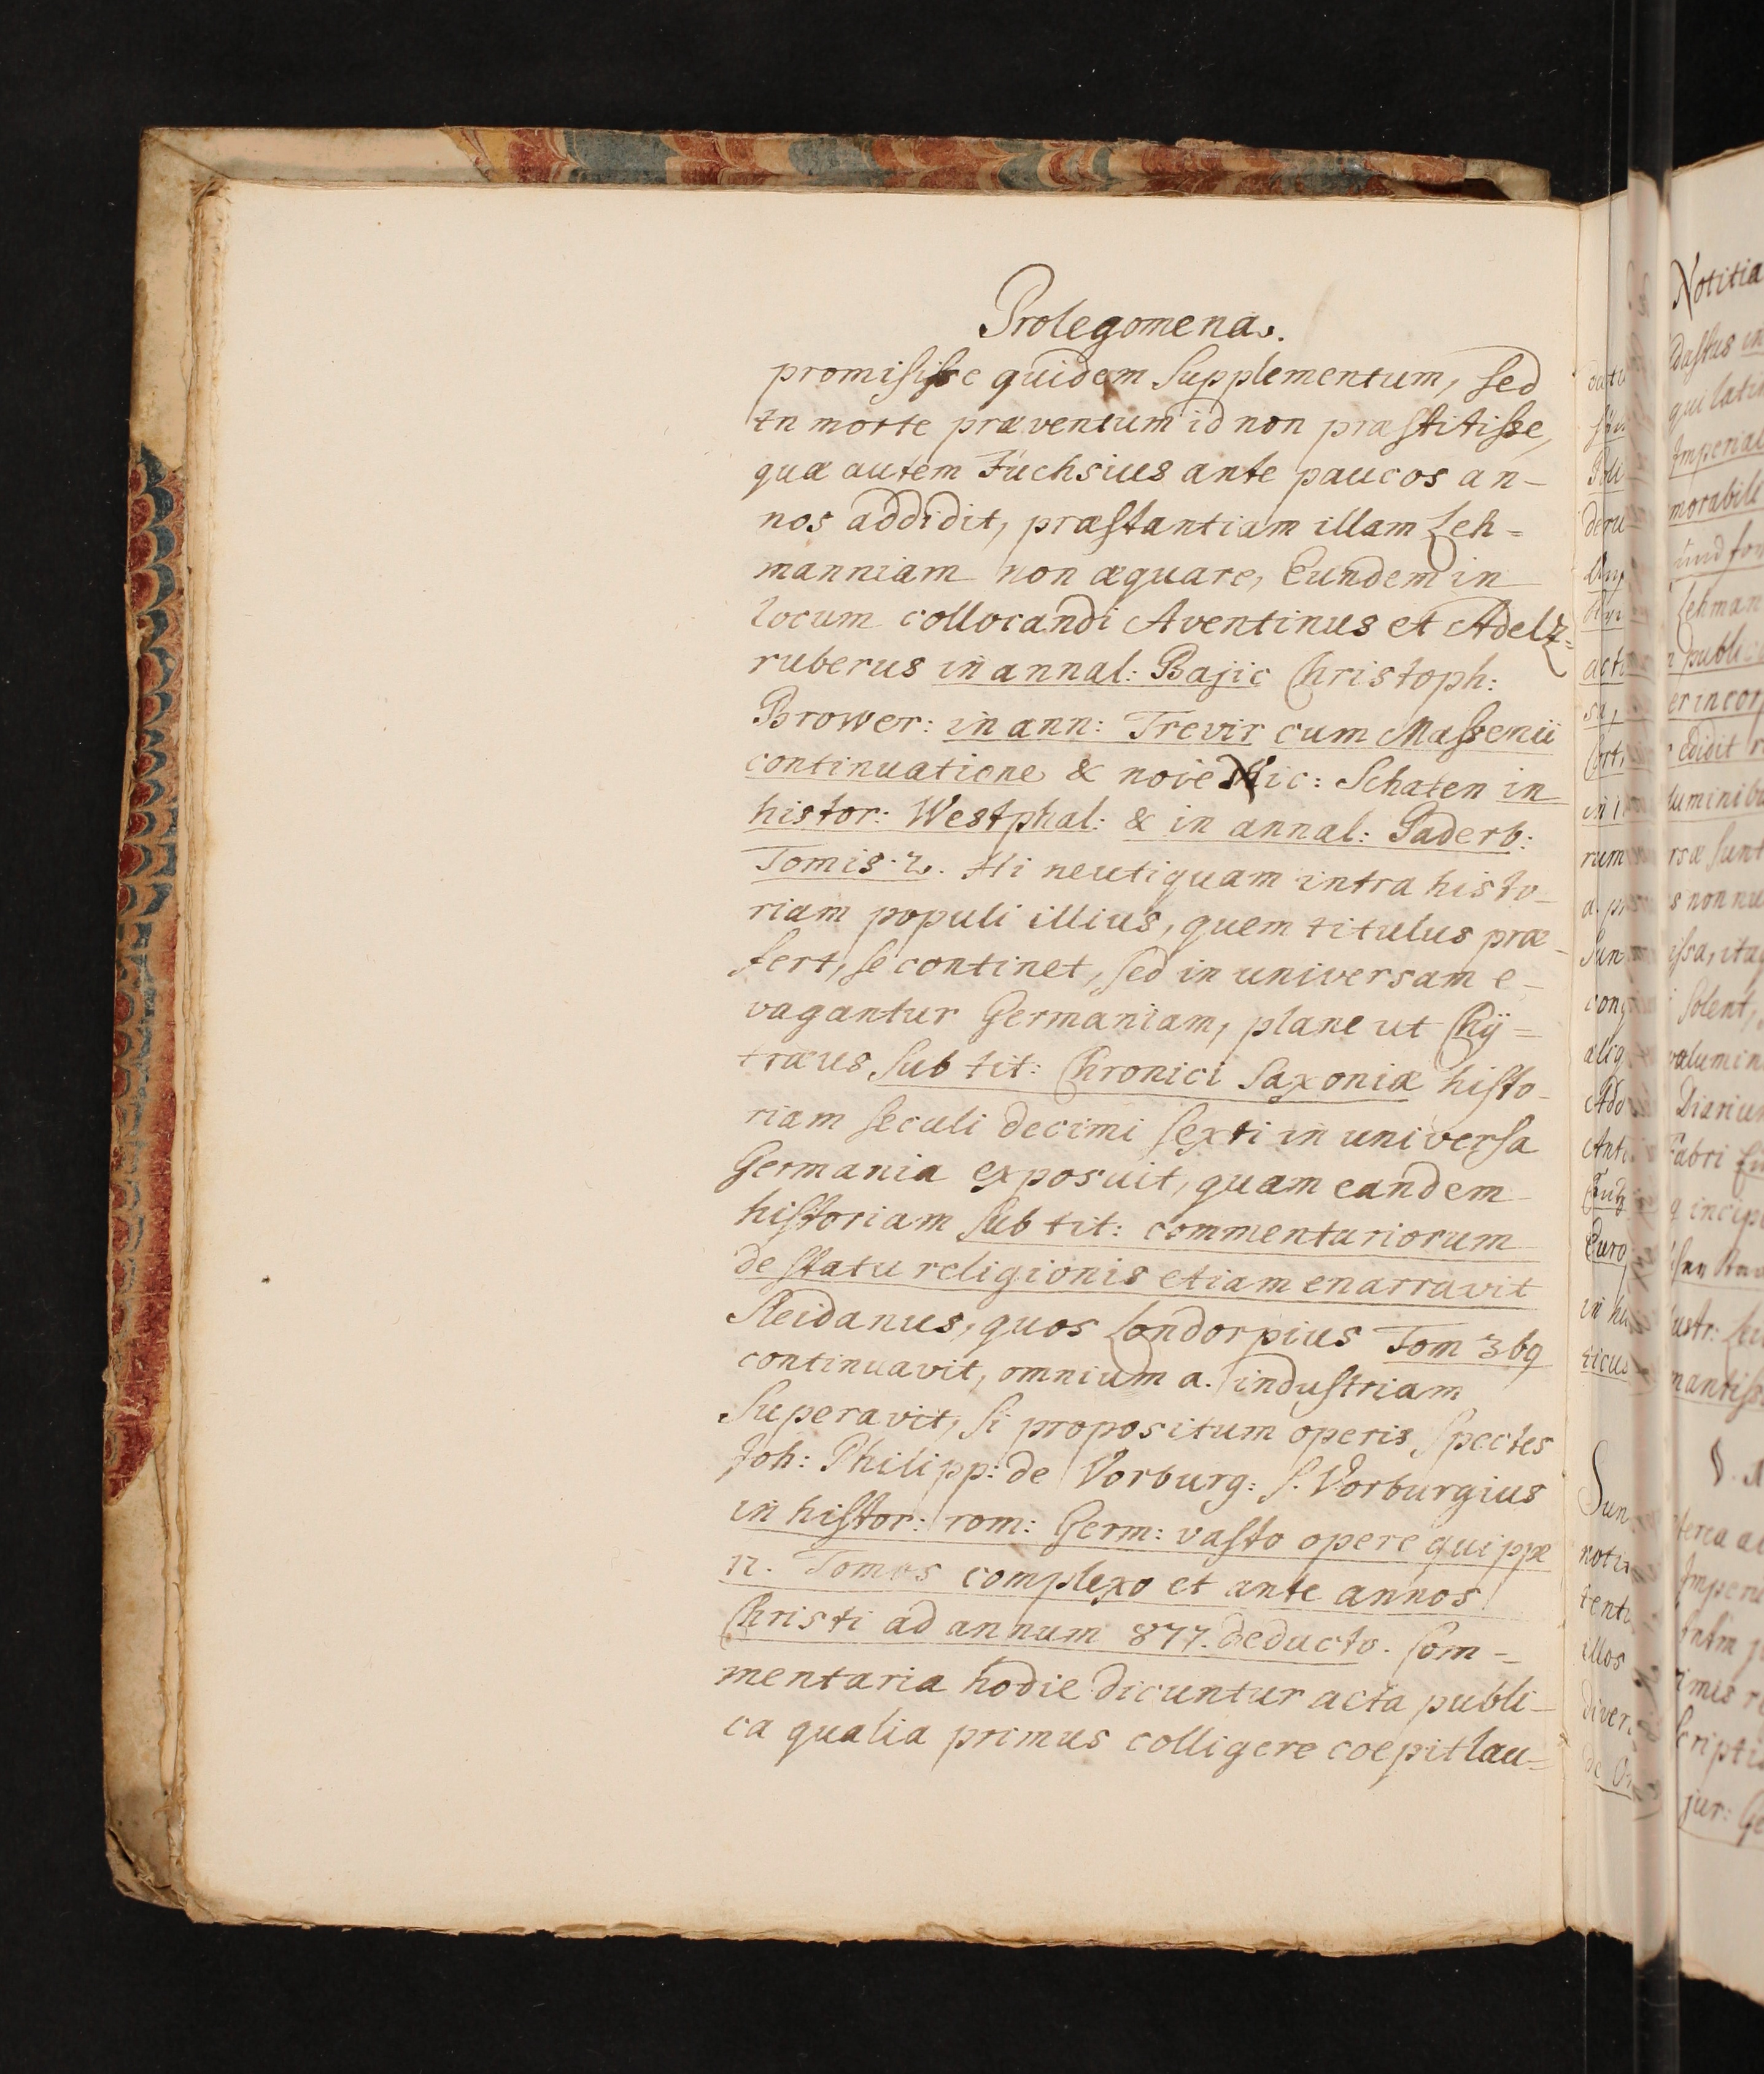 Prolegomena.
promisisse quidem Supplementum, sed
tn morte præventum id non præstitisse,
qua autem Fuchsius ante paucos an-
nos addidit, præstantiam illam Leh=
manniam non æquare, Eundem in
locum collocandi Aventinus et Adelz=
ruberus in annal: Bajic Christoph:
Brower: in ann: Trevir cum Massenii
continuatione & nove Nic: Schaten in
histor: Westphal: & in annal: Paderb:
Tomis 2. Hi neutiquam intra histo-
riam populi illius, quem titulus præ-
fert, se continet, sed in universam e-
vagantur Germaniam, plane ut Chÿ=
træus sub tit: Chronici Saxoniæ histo-
riam seculi decimi sexti in universa
Germania exposuit, quam eandem
historiam sub tit: commentariorum
de statu religionis etiam enarravit
Sleidanus, quos Londorpius Tom 3bq
continuavit, omnium a. industriam
Superavit, si propositum operis spectes
Joh: Philipp: de Vorburg: s. Vorburgius
in histor: rom: Germ: vasto opere quippe
12. Tomos complexo et ante annos
Christi ad annum 877. deducto. Com=
mentaria hodie dicuntur acta publi-
ca qualia primus colligere coepit lau=
Notitia
dastus in
qui latin
Imperial
morabili
und fon
Lehman
n public
er incorp
edidit
lumini
rsæ sunt
s non nu
issa, itaq
solent,
volumin
Diarium
Fabri
q incip